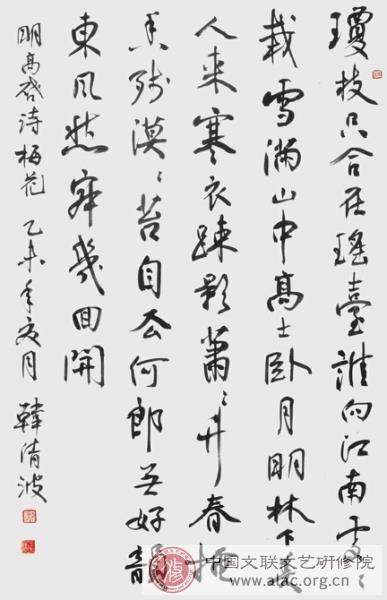 瓊枝只合在瑤臺誰向江南處〻
栽雪滿山中高士卧月明林下美
人来寒衣疎影蕭〻竹春掩
香残漠〻苔自去何郎无好韻
東风愁寂幾回開
明高啓詩梅花 乙未年夏月 韓清波
中国文联文艺研修院
www.alac.org.cn